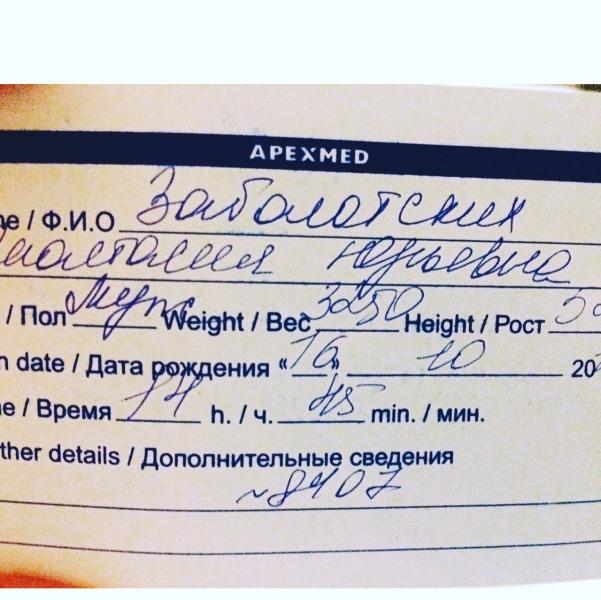 APEXMED
ne / Ф.И.О Заболотских
Анастасия Юрьевна
/ Пол Муж Weight / Вес 3250 Height / Рост 5
n date / Дата рождения «16» 10 20
ne / Время 14 h. / ч. 45 min. / мин.
ther details / Дополнительные сведения
~8407